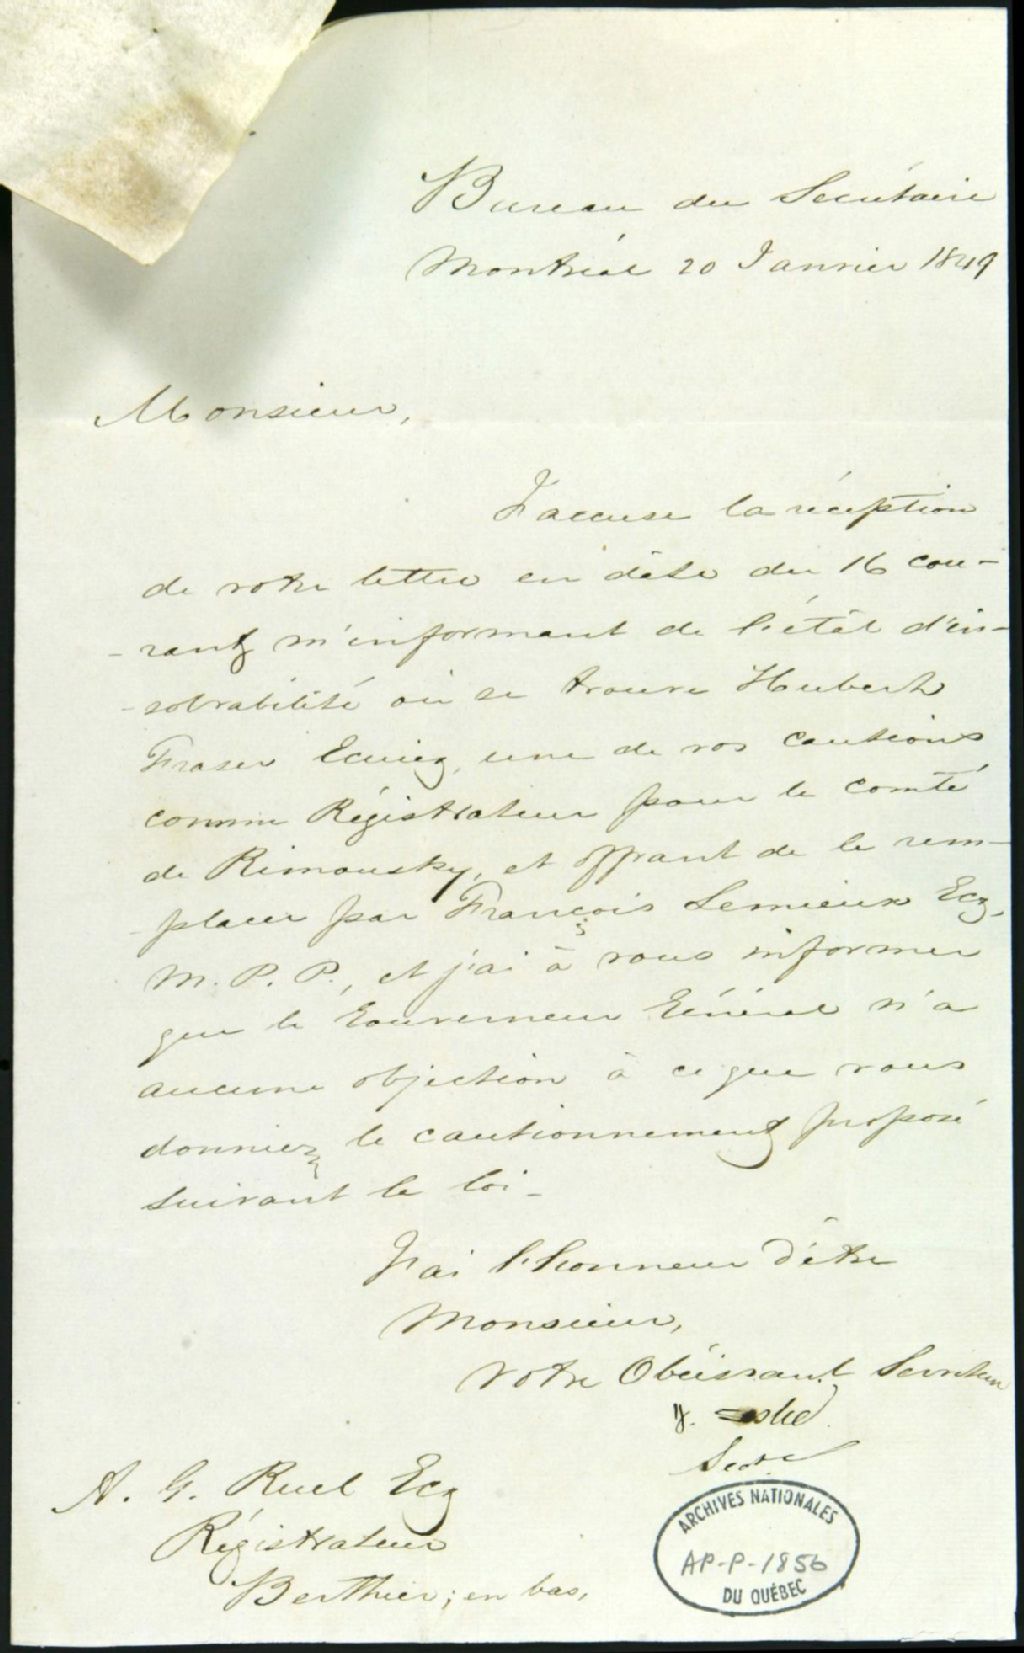 Bureau du Secrétaire
Montréal 20 Janvier 1849
Monsieur,
J'accuse la réception
de votre lettre en date du 16 cou-
-rant, m'informant de l'état d'in-
-solvabilité où se trouve Hubert
Fraser Ecuier, une de vos cautions
comme Régistrateur pour le comté
de Rimousky, et offrant de le rem-
-placer par François Lemieux Ecr,
M. P. P., et j'ai à vous informer
que le Gouverneur Général n'a
aucune objection à ce que vous
donniez le cautionnement proposé
suivant la loi_
J'ai l'honneur d'être
Monsieur,
Votre Obéissant Serviteur
Secre
A. G. Ruel Ecr
Régistrateur
Berthier; en bas,
ARCHIVES NATIONALES
AP-P-1856
DU QUÉBEC